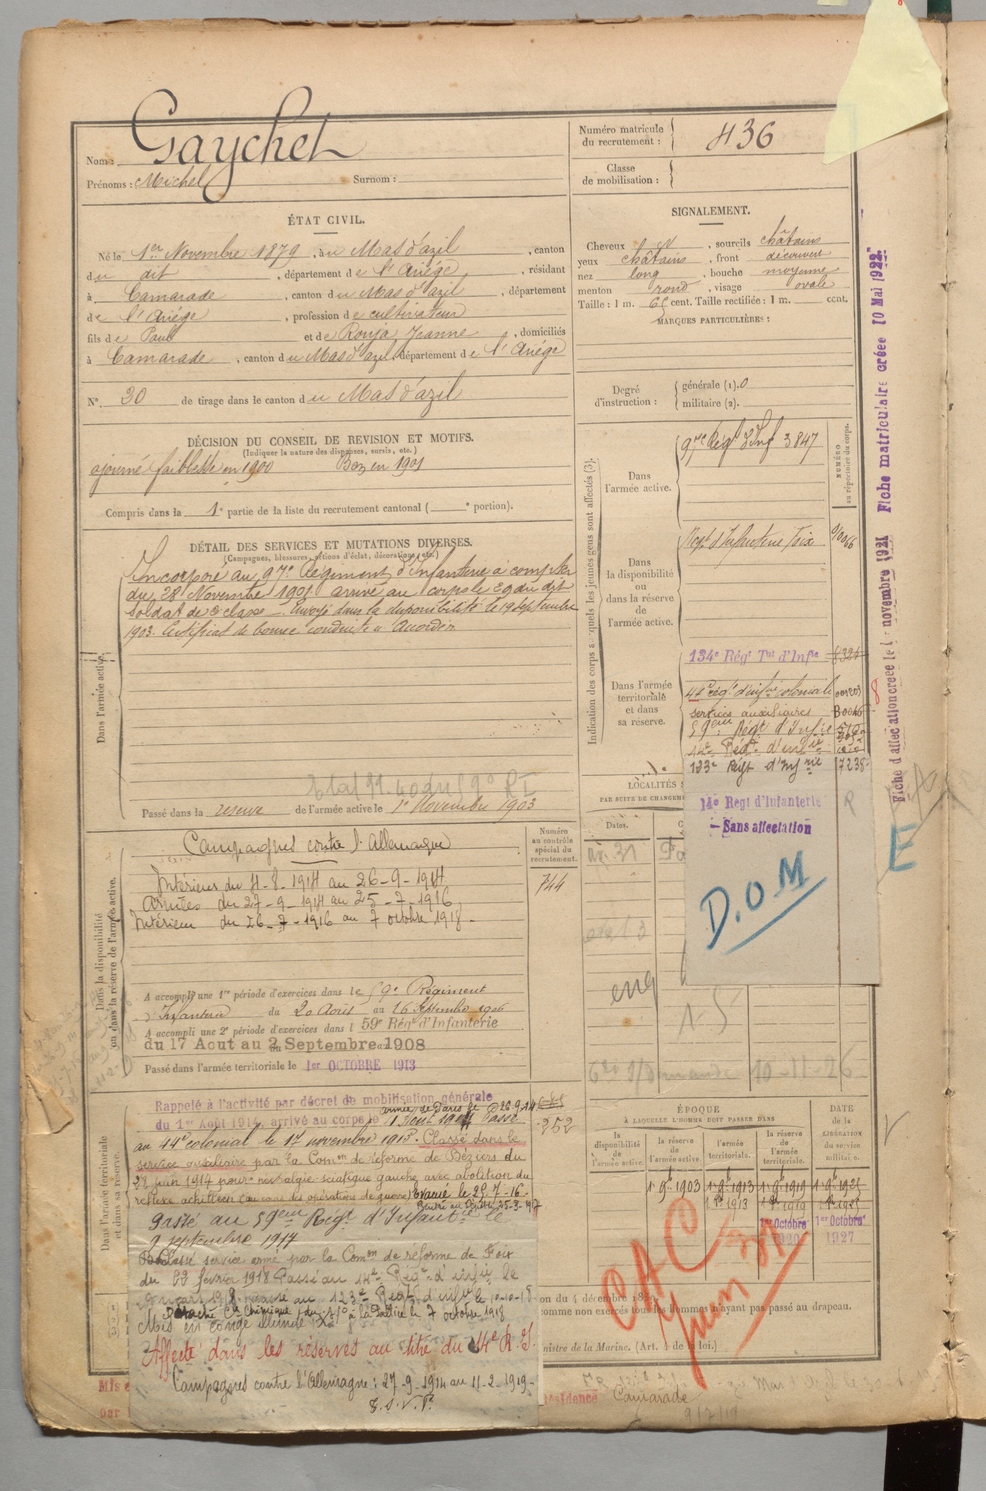 Nom : Gaychet
Prénoms : Michel Surnom :
Numéro matricule du recrutement : 436
Classe de mobilisation :
ÉTAT CIVIL.
Né le 1er Novembre 1879, à u Mas d'azil, canton
du dit, département de l'Ariége, résidant
à Camarade, canton du Mas d'azil, département
de l'Ariége, profession de cultivateur
fils de Paul et de Rouja Jeanne, domiciliés
à Camarade, canton du Mas d'azil, département de l'Ariége
N° 20 de tirage dans le canton du Mas d'azil
SIGNALEMENT.
Cheveux N, sourcils châtains
yeux châtains, front découvert
nez long, bouche moyenne
menton rond, visage ovale
Taille : 1 m. 65 cent. Taille rectifiée : 1 m. cent.
MARQUES PARTICULIÈRES :
Degré d'instruction : générale (1). 0
militaire (2).
DÉCISION DU CONSEIL DE REVISION ET MOTIFS.
(Indiquer la nature des dispenses, sursis, etc.)
ajourné faiblesse en 1900 Bon en 1901
Compris dans la 1e partie de la liste du recrutement cantonal ( e portion).
DÉTAIL DES SERVICES ET MUTATIONS DIVERSES.
(Campagnes, blessures, actions d'éclat, décorations, etc.)
Dans l'armée active.
Incorporé au 97e Régiment d'infanterie à compter
du 28 Novembre 1901 arrivé au corps le 29 du dit
Soldat de 2e classe. Envoyé dans la disponibilité le 19 Septembre
1903. Certificat de bonne conduite "Accordé"
Passé dans la réserve de l'armée active le 1er Novembre 1903
Indication des corps auxquels les jeunes gens sont affectés (3).
NUMÉRO au répertoire du corps.
Dans l'armée active.
97e Régt d'Inf 3847
Dans la disponibilité ou dans la réserve de l'armée active.
Régt d'Infanterie Foix
Dans l'armée territoriale et dans sa réserve.
134e Régt Tal d'Infie
44e rég. d'infrie coloniale
services auxiliaires
59eme Régt d'Infie
14e Régt d'infie
123e Régt d'Infrie 7238
14e Regt d'Infanterie
— Sans affectation
D.O.M
E
Fiche matriculaire créée 10 Mai 1922
Fiche d'affectation créée le novembre 1921
LOCALITÉS
PAR SUITE DE CHANGEM
Dates.
Dans la disponibilité ou dans la réserve de l'armée active.
Numéro au contrôle spécial du recrutement.
744
Campagnes contre l'Allemagne
Intérieur du 4-8-1914 au 26-9-1914
Armées du 27-9-1914 au 25-7-1916
Intérieur du 26-7-1916 au 7 octobre 1918.
A accompli une 1re période d'exercices dans le 59e Régiment
d'Infanterie du 20 Août au 16 Septembre 1906
A accompli une 2e période d'exercices dans l 59e Régt d'Infanterie
du 17 Aout au 2 Septembre 1908
Passé dans l'armée territoriale le 1er OCTOBRE 1913
Dans l'armée territoriale et dans sa réserve.
Rappelé à l'activité par décret de mobilisation générale
du 1er Août 1914, arrivé au corps le
252
au 44e colonial le 1er novembre 1915. Classé dans le
service auxiliaire par la Comon de réforme de Béziers du
pour névralgie sciatique gauche avec abolition du
réflexe achilléen Evacué le 25-7-16.
Passé au 59eme Régt d'Infantie le
9 septembre 1917
Classé service armé par la Comon de réforme de Foix
du 22 février 1918 Passé au 14e Régt d'infie le
passé au 123e Régt d'infrie le
à la Poudrerie le 7 octobre 1918
Mis en congé illimité
Affecté dans les réserves au titre du 14e R.I.
Campagnes contre l'Allemagne : 27-9-1914 au 11-2-1919-
T.S.V.P.
10-11-26
ÉPOQUE
A LAQUELLE L'HOMME DOIT PASSER DANS
DATE de la LIBÉRATION du service militaire.
la disponibilité de l'armée active.
la réserve de l'armée active.
l'armée territoriale.
la réserve de l'armée territoriale.
1er 9bre 1903 1er 9bre 1913 1er 9bre 1919 1er 9bre 1925
1er 8bre 1913 1er 8bre 1919 1er 8bre 1925
1er Octobre 1920 1er Octobre 1927
CAC
juin 31
omme non exercés tous les hommes n'ayant pas passé au drapeau.
nistre de la Marine. (Art. 4 de la loi.)
Mis e
par
résidence Camarade